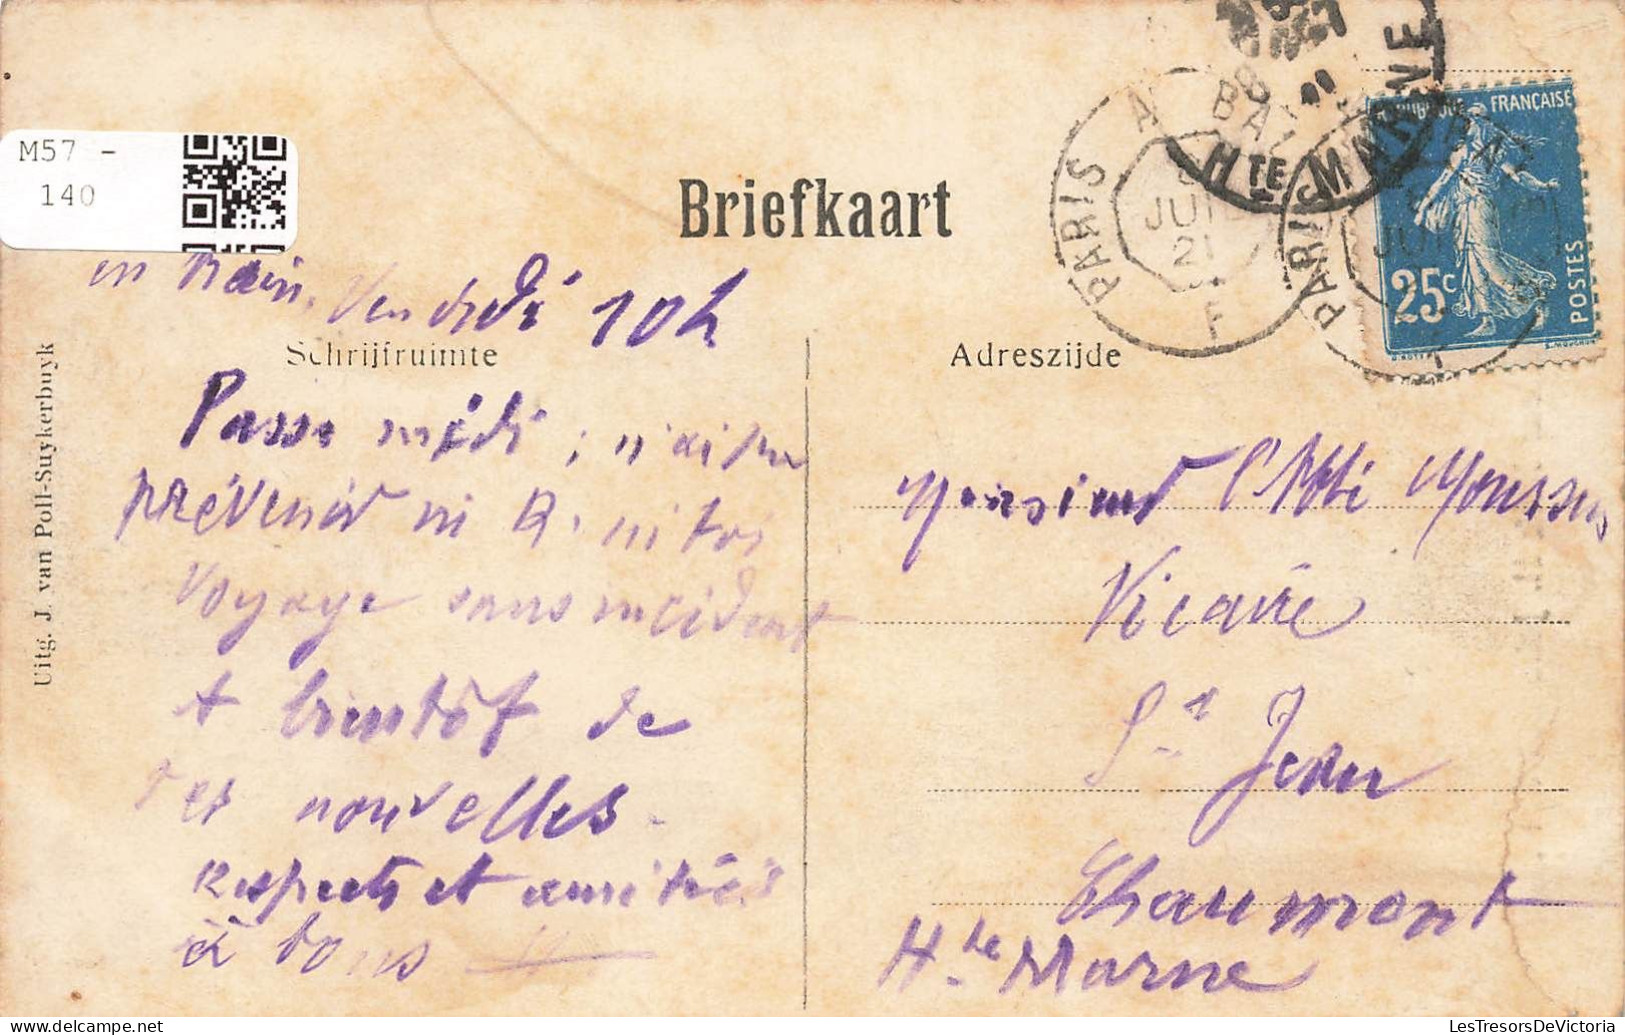 M57 -
140
Briefkaart
en train, Vendredi 10h
Schrijfruimte
Adreszijde
Uitg. J. van Poll-Suykerbuyk
Passe midi ; n'ai pu
prévenir ni R. ni toi
Voyage sans incident
A bientôt de
tes nouvelles.
respects et amitiés
à tous
Monsieur l'Abbé
Vicaire
St Jean
Chaumont
Hte Marne
PARIS A
JUIL
21
F
Hte MARNE
PARIS
FRANÇAISE
25c
POSTES
LesTresorsDeVictoria